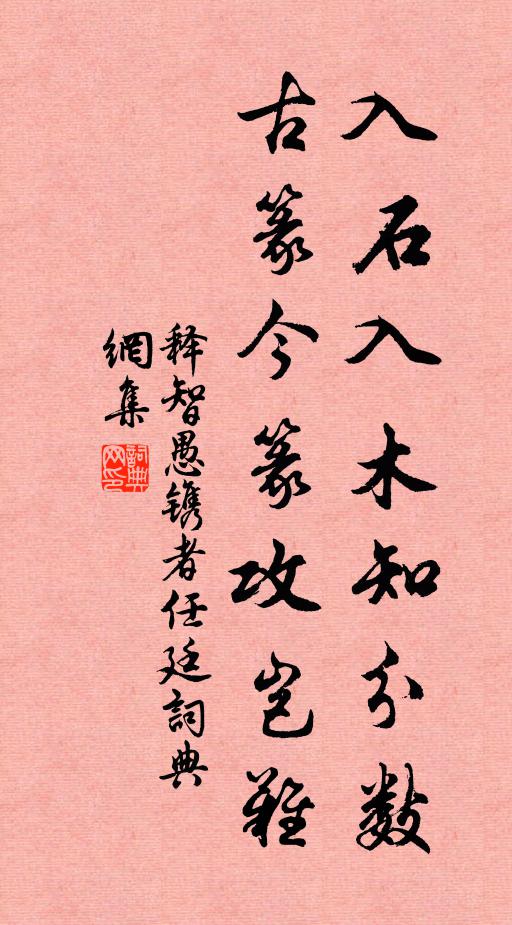 入石入木知分数
古篆今篆攻岂难
释智愚镌者任廷詞典
網集
詞典
网印